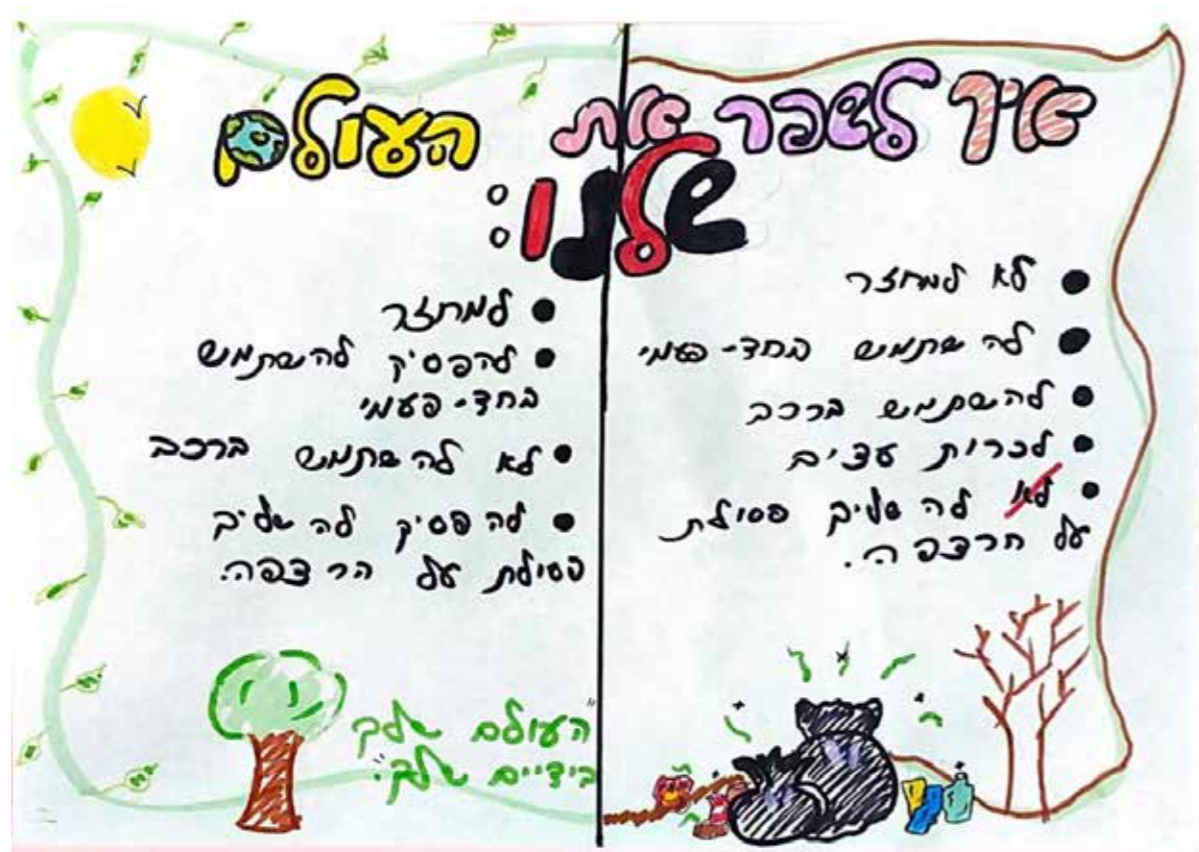 איך לשפר את העולם
שלנו:
לא למחזר
להשתמש בחד-פעמי
להשתמש ברכב
לכרות עצים
לא להשליך פסולת
על הרצפה.
למחזר
להפסיק להשתמש
בחד-פעמי
לא להשתמש ברכב
להפסיק להשליך
פסולת על הרצפה.
"העולם שלך
בידיים שלך".